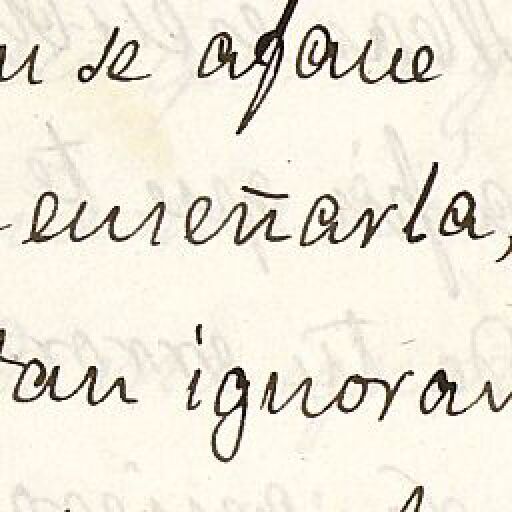 n se afane
enseñarla,
tan ignoran